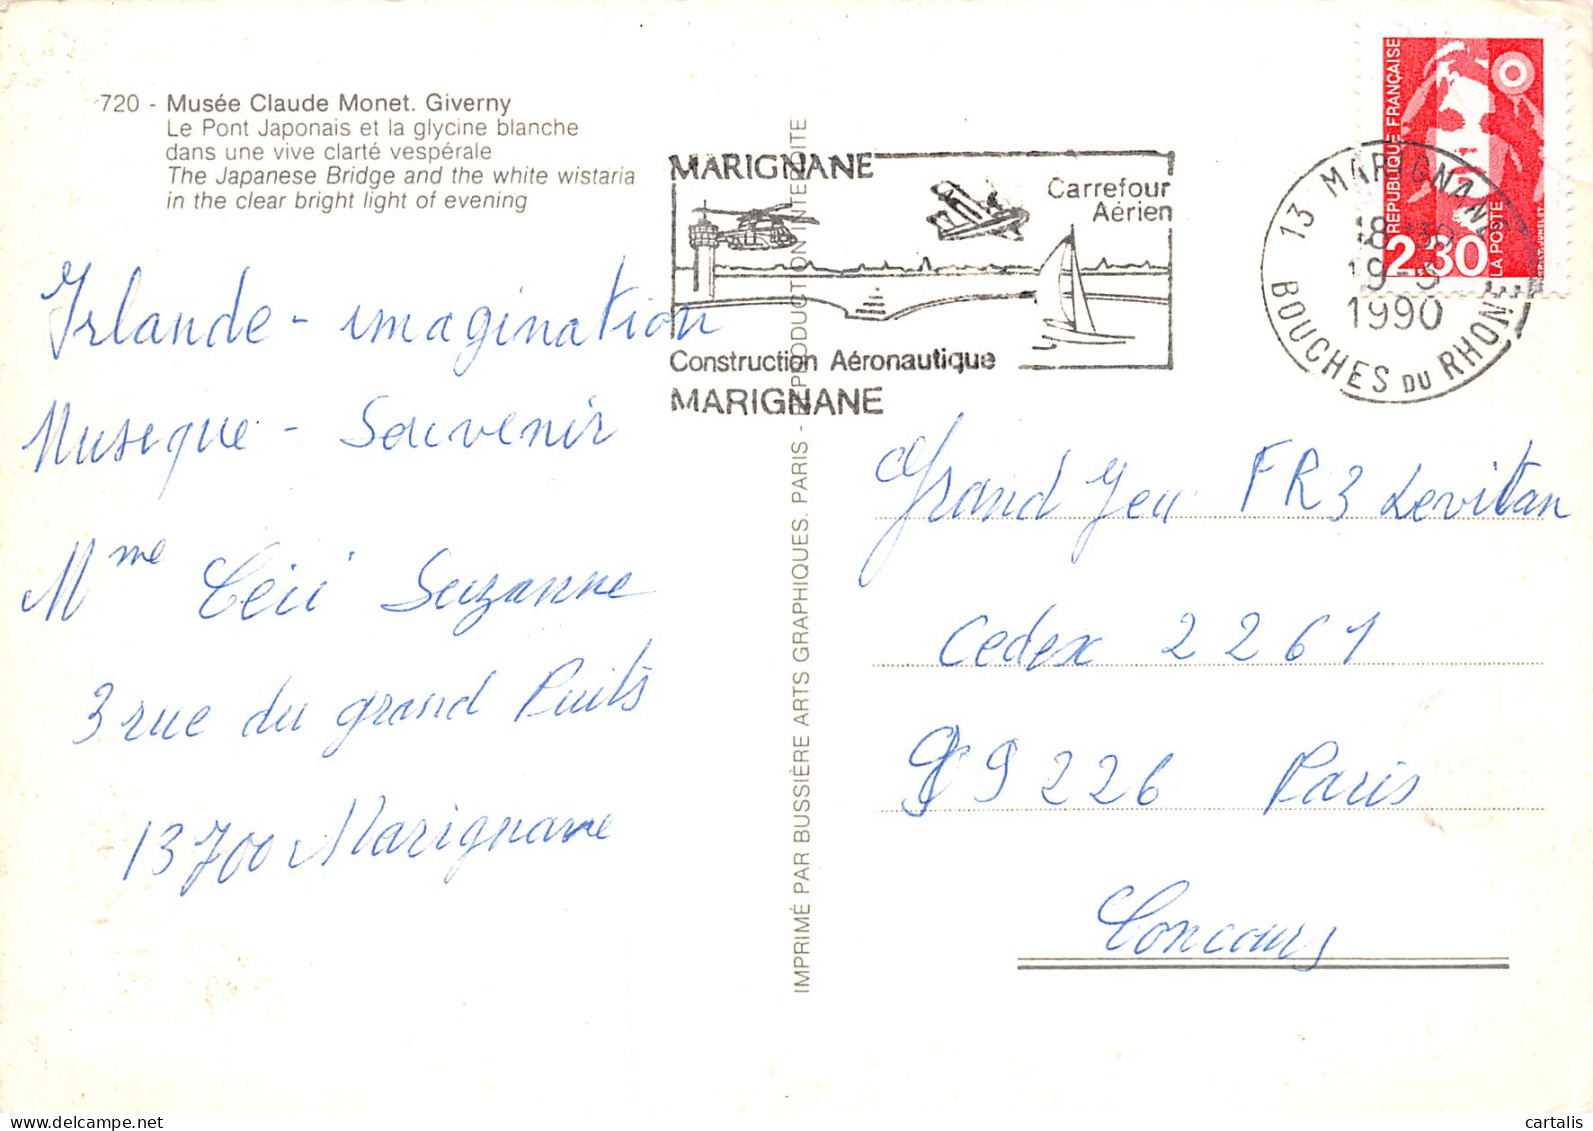 720 - Musée Claude Monet. Giverny
Le Pont Japonais et la glycine blanche
dans une vive clarté vespérale
The Japanese Bridge and the white wistaria
in the clear bright light of evening
Irlande - imagination
Musique - Souvenir
Mme Suzanne
3 rue du grand Puits
13700 Marignane
IMPRIMÉ PAR BUSSIÈRE ARTS GRAPHIQUES. PARIS - REPRODUCTION INTERDITE
MARIGNANE
Carrefour
Aérien
Construction Aéronautique
MARIGNANE
13 MARIGNANE
1990
BOUCHES DU RHONE
REPUBLIQUE FRANÇAISE
2,30
LA POSTE
Grand Jeu FR3 Levitan
Cedex 2261
99226 Paris
Concours
cartalis